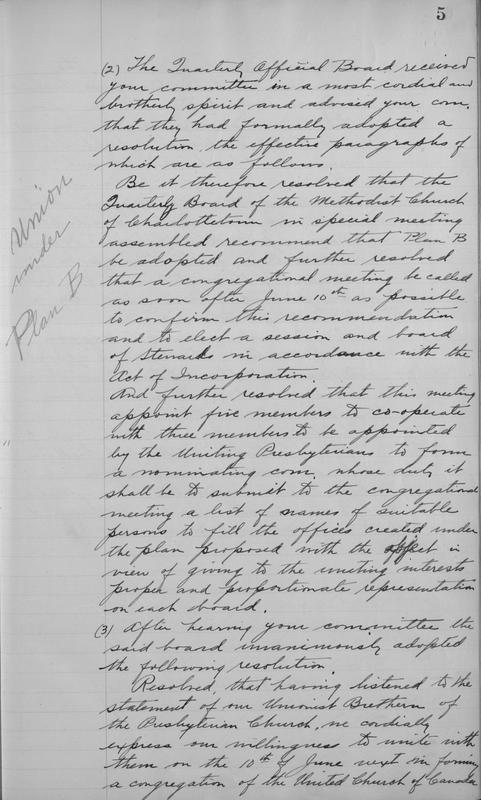 5
(2) The Quarterly Official Board received
your committee in a most cordial and
brotherly spirit and advised your com.
that they had formally adopted a
resolution the effective paragraphs of
which are as follows.
Be it therefore resolved that the
Quarterly Board of the Methodist Church
of Charlottetown in special meeting
assembled recommend that Plan B
be adopted and further resolved
that a congregational meeting be called
as soon after June 10th as possible
to confirm this recommendation
and to elect a session and board
of Stewards in accordance with the
Act of Incorporation.
And further resolved that this meeting
appoint five members to co-operate
with three members to be appointed
by the Uniting Presbyterians to form
a nominating com. whose duty it
shall be to submit to the congregational
meeting a list of names of suitable
persons to fill the offices created under
the plan proposed with the object in
view of giving to the uniting interests
proper and proportionate representation
on each board.
(3) After hearing your committee the
said board unanimously adopted
the following resolution.
Resolved, that having listened to the
statement of our Unionist Brethern of
the Presbyterian Church, we cordially
express our willingness to unite with
them on the 10th of June next in forming
a congregation of the United Church of Canada
Union
under
Plan B